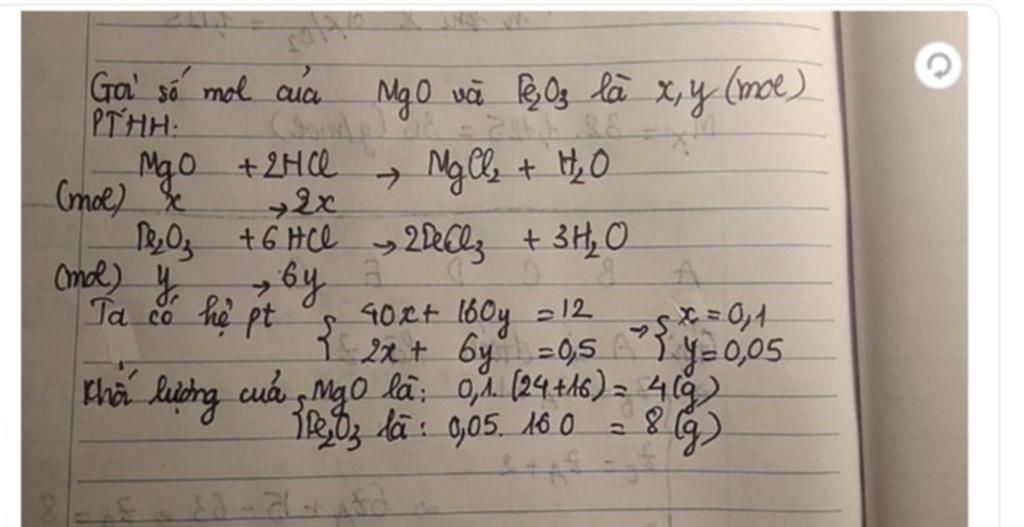 Gọi số mol của MgO và Fe₂O₃ là x, y (mol)
PTHH:
MgO + 2HCl → MgCl₂ + H₂O
(mol) x → 2x
Fe₂O₃ + 6HCl → 2FeCl₃ + 3H₂O
(mol) y → 6y
Ta có hệ pt { 40x + 160y = 12 → { x = 0,1
2x + 6y = 0,5 y = 0,05
Khối lượng của { MgO là: 0,1. (24+16) = 4 (g)
Fe₂O₃ là: 0,05. 160 = 8 (g)